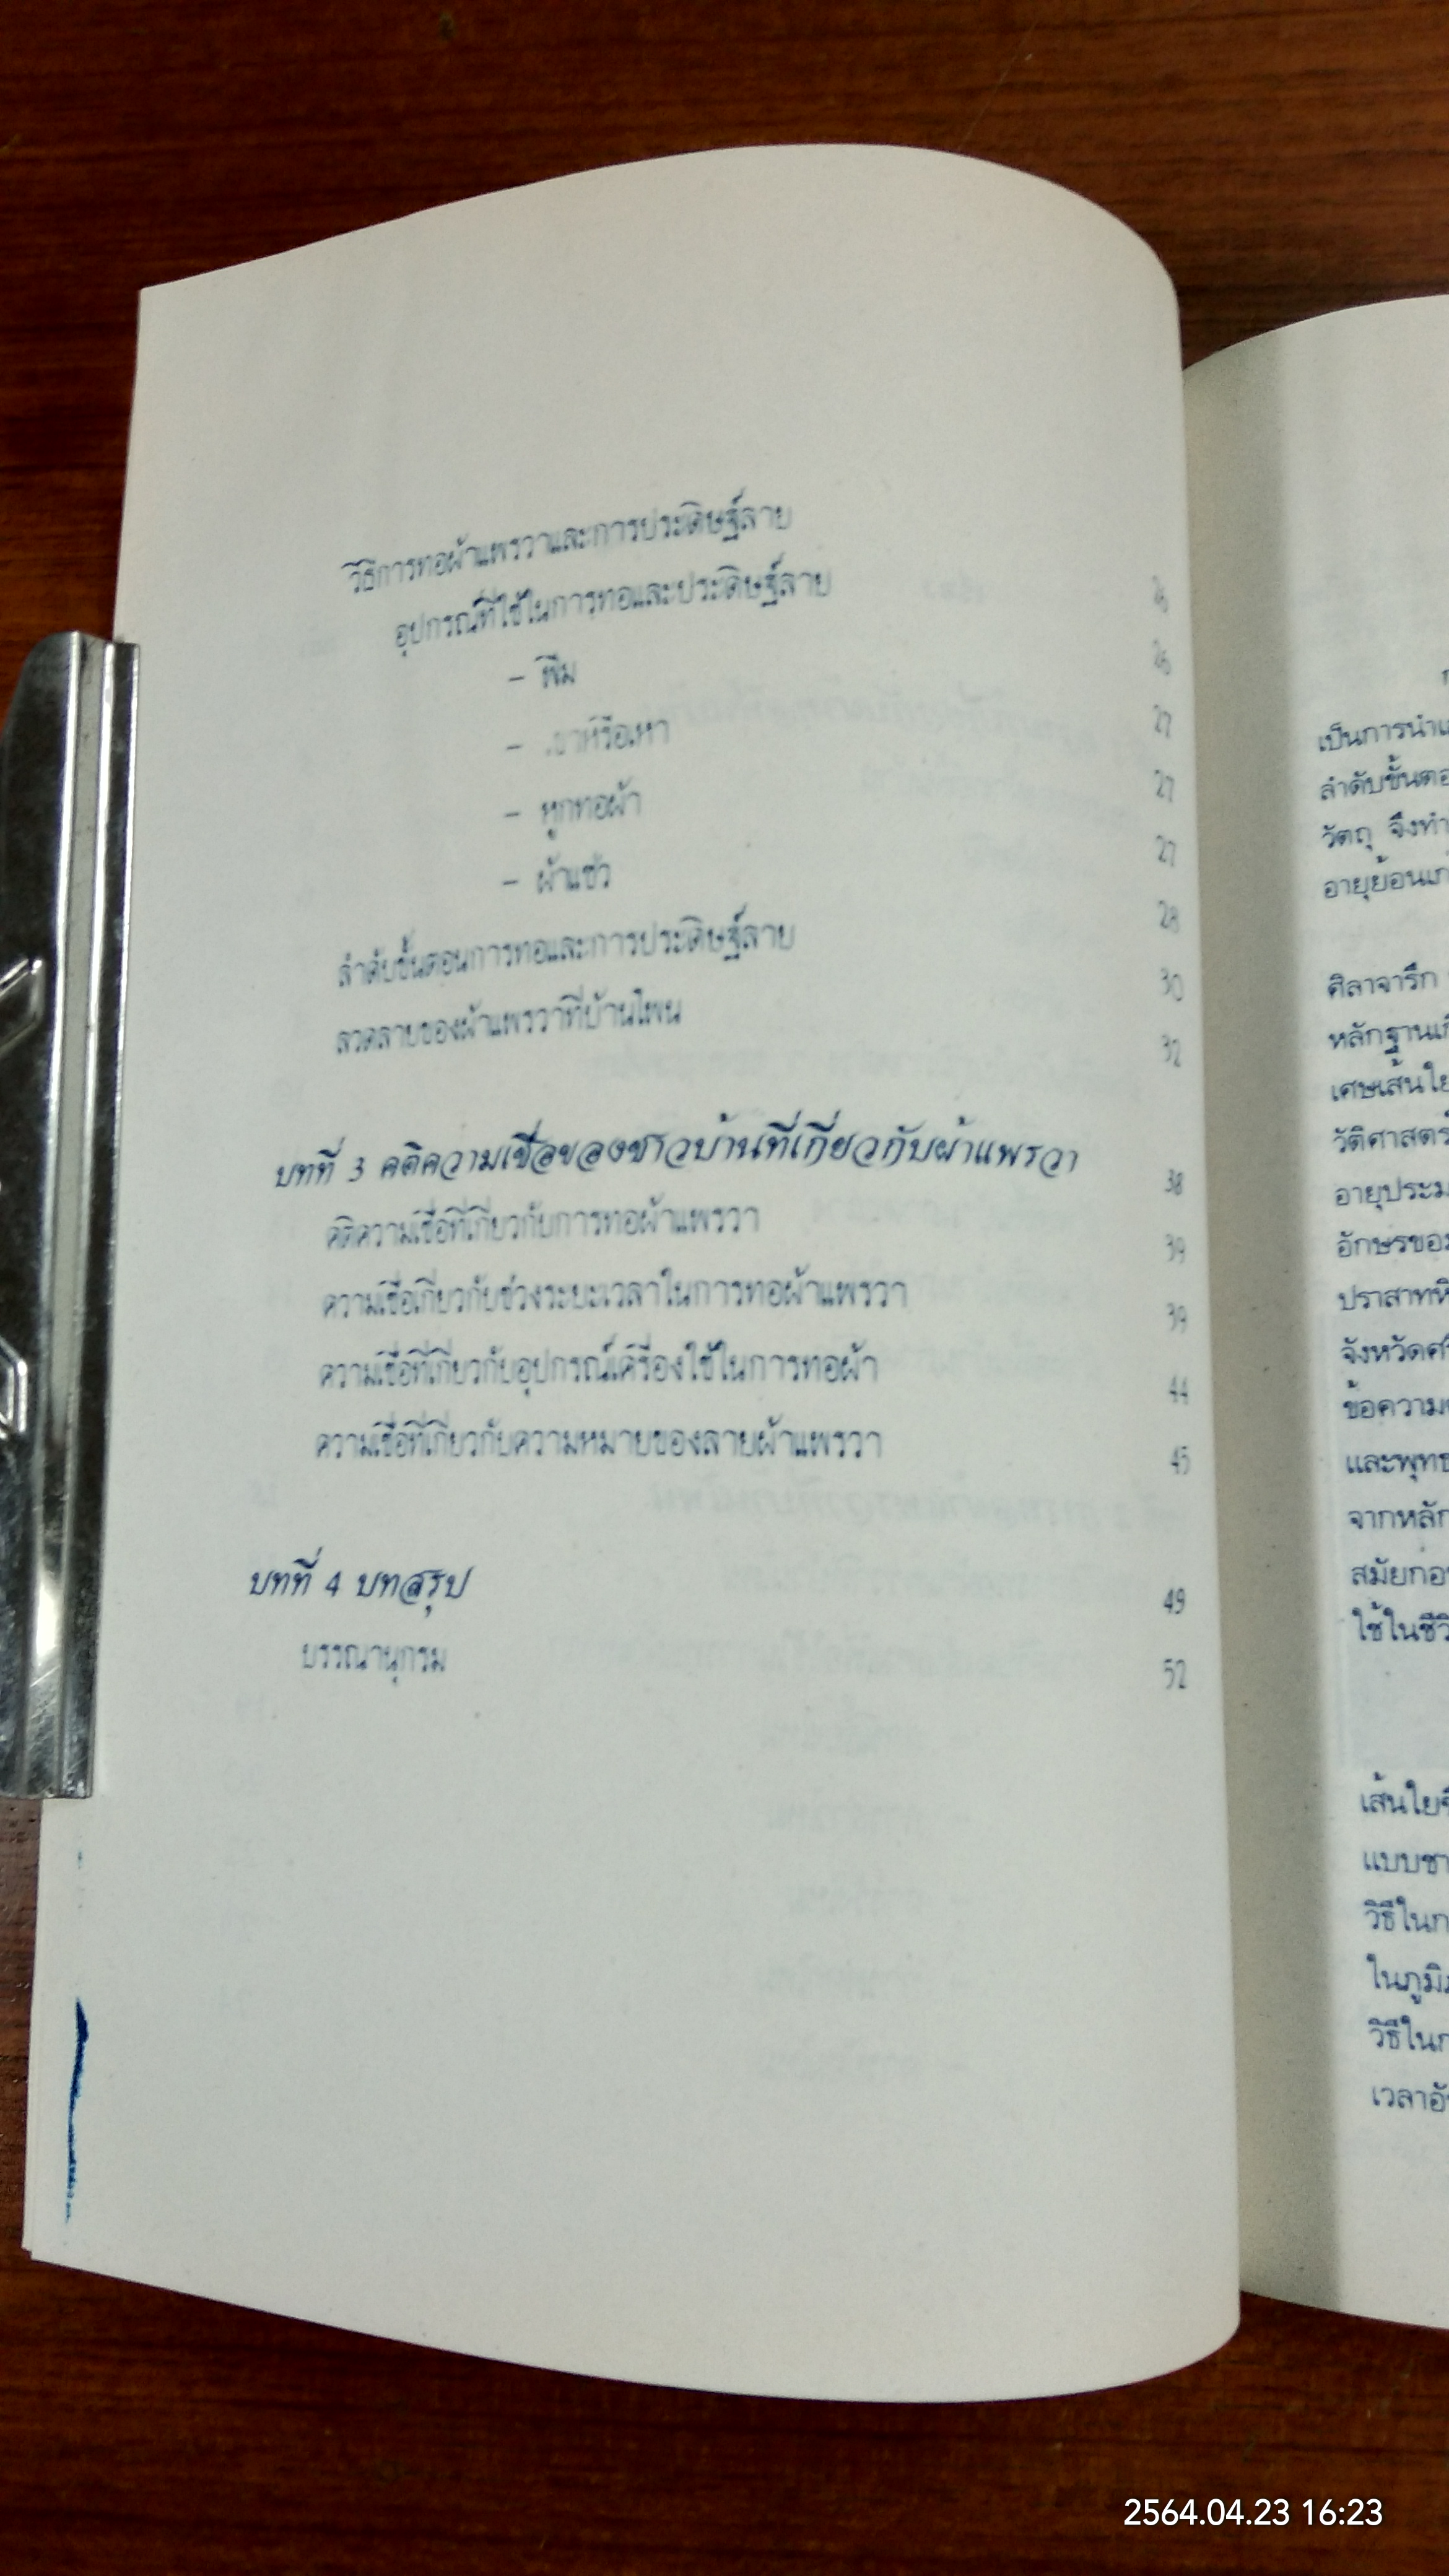 วิธีการทอผ้าแพรวาและการประดิษฐ์ลาย 26
อุปกรณ์ที่ใช้ในการทอและประดิษฐ์ลาย 26
- ฟืม 27
- เขาหรือเหา 27
- หูกทอผ้า 27
- ผ้าแซ่ว 28
ลำดับขั้นตอนการทอและการประดิษฐ์ลาย 30
ลวดลายของผ้าแพรวาที่บ้านโพน 32
บทที่ 3 คติความเชื่อของชาวบ้านที่เกี่ยวกับผ้าแพรวา 38
คติความเชื่อที่เกี่ยวกับการทอผ้าแพรวา 39
ความเชื่อเกี่ยวกับช่วงระยะเวลาในการทอผ้าแพรวา 39
ความเชื่อที่เกี่ยวกับอุปกรณ์เครื่องใช้ในการทอผ้า 44
ความเชื่อที่เกี่ยวกับความหมายของลายผ้าแพรวา 45
บทที่ 4 บทสรุป 49
บรรณานุกรม 52
เป็นการนำ
ลำดับขั้นตอ
วัตถุ จึงทำ
อายุย้อน
ศิลาจารึก
หลักฐาน
เศษเส้นใย
วัติศาสตร์
อายุประม
อักษรของ
ปราสาทหิ
จังหวัดศ
ข้อความ
และพุทธ
จากหลัก
สมัยก่อ
ใช้ในชีวิ
เส้นใย
แบบชา
วิธีในก
ในภูมิ
วิธีในก
เวลาอั
2564.04.23 16:23